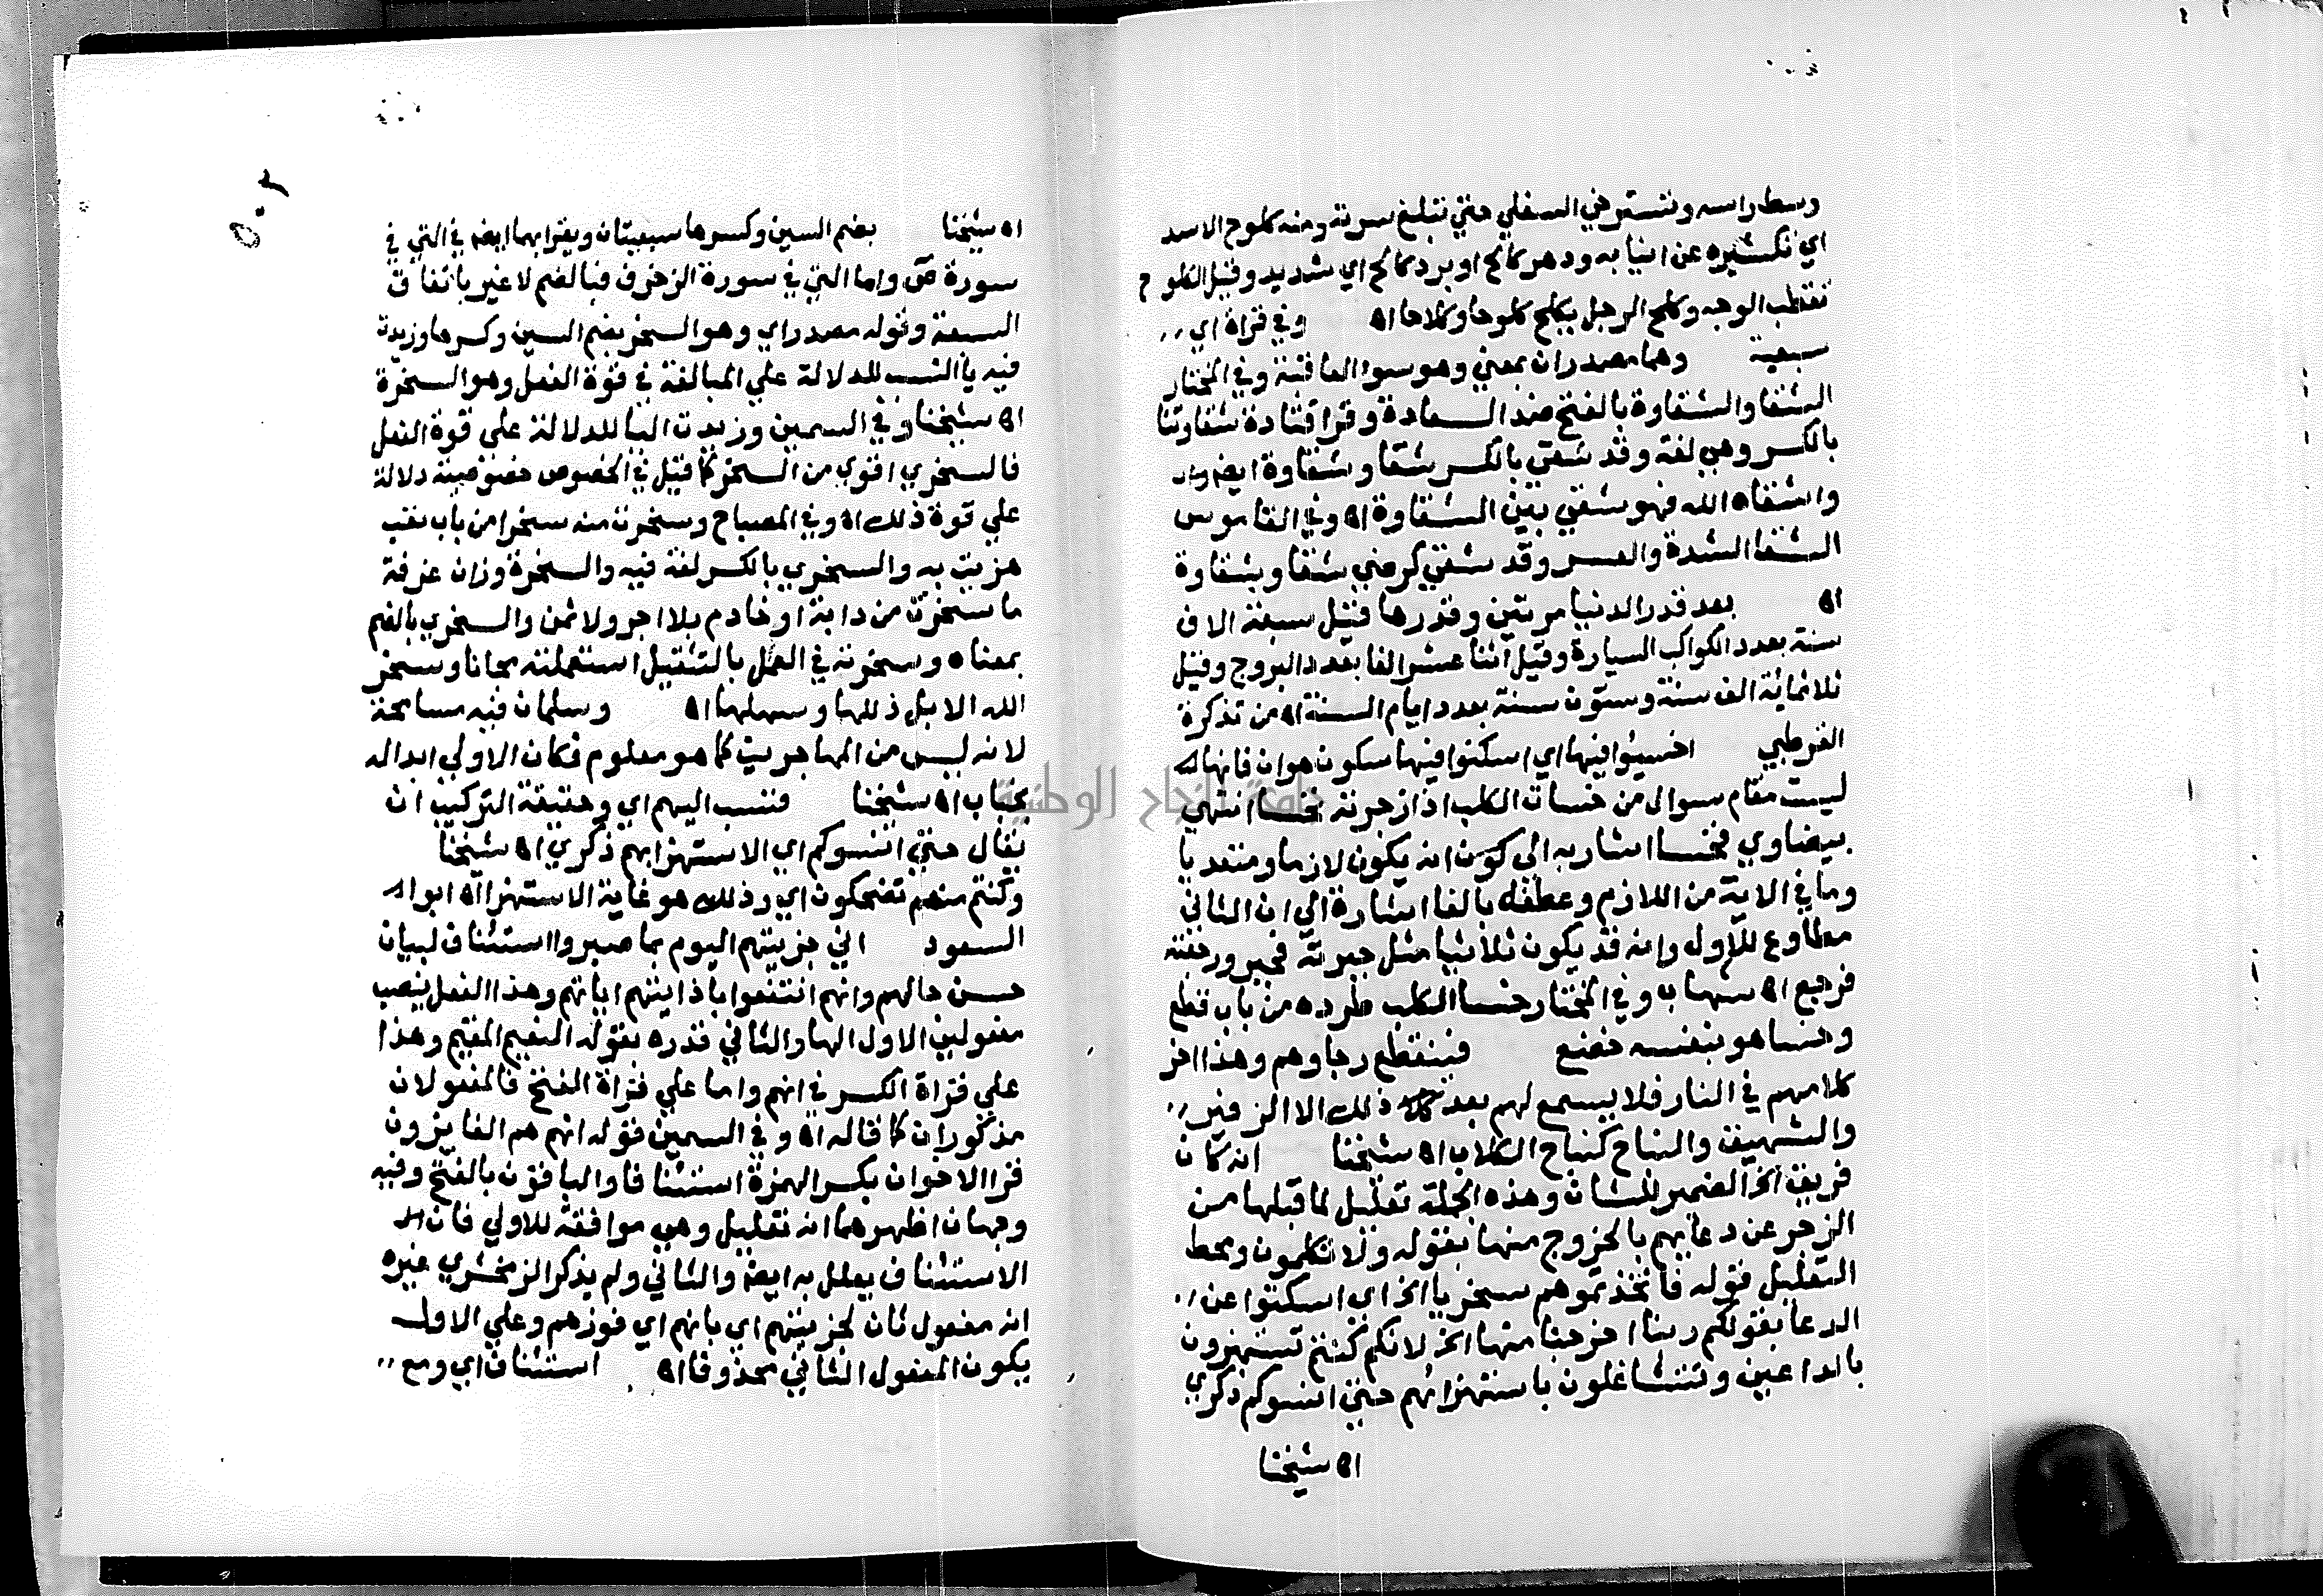 وسط راسه وتسترخي السفلي حتي تبلغ سرته ومنه كلوح الاسد
اي تكشيره عن انيابه ودهر كالح او برد كالح اي شديد وقيل الكلوح
تقطب الوجه وكلح الرجل يكلح كلوحا وكلاحا اه وفي قراة اي
سبعية وهما مصدران بمعني وهو سوء العاقبة وفي المختار
الشقا والشقاوة بالفتح ضد السعادة وقرا قتادة شقاوتنا
بالكسر وهي لغة وقد شقي بالكسر شقا وشقاوة ايضا
واشقاه الله فهو شقي بين الشقاوة اه وفي القاموس
الشقا الشدة والعسر وقد شقي كرضي شقا وشقاوة
اه بعد قدر الدنيا مرتين وقدرها قيل سبعة الاف
سنة بعدد الكواكب السيارة وقيل اثنا عشر الفا بعدد البروج وقيل
ثلاثماية الف سنة وستون سنة بعدد ايام السنة اه من تذكرة
القرطبي اخسيوا فيها اي اسكتوا فيها سكوت هوان فانها
ليست مقام سوال من خسات الكلب اذا زجرته فخسا انتهي
بيضاوي فخسا اشار به الي كون انه يكون لازما ومتعديا
وما في الاية من اللازم وعطفه بالفا اشارة الي ان الثاني
مطاوع للاول وانه قد يكون ثلاثيا مثل جبرته فجبر ورجعته
فرجع اه شهاب وفي المختار خسا الكلب طرده من باب قطع
وخسا هو بنفسه خضع فينقطع رجاوهم وهذا اخر
كلامهم في النار فلا يسمع لهم بعد ذلك الا الزفير
والشهيق والنباح كنباح الكلاب اه شيخنا انه كان
فريق الخ الضمير للشان وهذه الجملة تعليل لما قبلها من
الزجر عن دعايهم بالخروج منها بقوله ولا تكلمون ومحط
التعليل قوله فاتخذتموهم سخريا الخ اي اسكتوا عن
الدعا بقولكم ربنا اخرجنا منها الخ لانكم كنتم تستهزون
بالداعين وتتشاغلون باستهزائهم حتي انسوكم ذكري
اه شيخنا
٥٠٢
اه شيخنا بضم السين وكسرها سبعيتان ويقرا بهما ايضا في التي في
سورة ص واما التي في سورة الزخرف فبالضم لا غير باتفاق
السبعة وقوله مصدر اي وهو السخر بضم السين وكسرها وزيدت
فيه يا النسب للدلالة علي المبالغة في قوة الفعل وهو السخرة
اه شيخنا وفي السمين وزيدت اليا للدلالة علي قوة الفعل
فالسخري اقوي من السخر كما قيل في الخصوص خصوصية دلالة
علي قوة ذلك اه وفي المصباح وسخرت منه سخرا من باب تعب
هزيت به والسخري بالكسر لغة فيه والسخرة وزان غرفة
ما سخرت من دابة او خادم بلا اجر ولا ثمن والسخري بالضم
بمعناه وسخرته في العمل بالتثقيل استعملته مجانا وسخر
الله الابل ذللها وسهلها اه وسلمان فيه مسامحة
لانه ليس من المهاجرين كما هو معلوم فكان الاولي ابداله
بخباب اه شيخنا فنسب اليهم اي وحقيقة التركيب ان
يقال حتي انسوكم اي الاستهزا بهم ذكري اه شيخنا
وكنتم منهم تضحكون اي وذلك هو غاية الاستهزا اه ابو
السعود اني جزيتهم اليوم بما صبروا استئناف لبيان
حسن حالهم وانهم انتفعوا باذايتهم اياهم وهذا الفعل ينصب
مفعولين الاول الها والثاني قدره بقوله النعيم المقيم وهذا
علي قراة الكسر في انهم واما علي قراة الفتح فالمفعولان
مذكوران كما قاله اه وفي السمين قوله انهم هم الفايزون
قرا الاخوان بكسر الهمزة استئنافا والباقون بالفتح وفيه
وجهان اظهرهما انه تعليل وهي موافقة للاولي فان
الاستئناف يعلل به ايضا والثاني ولم يذكر الزمخشري غيره
انه مفعول ثان لجزيتهم اي بانهم اي فوزهم وعلي الاول
يكون المفعول الثاني محذوفا اه استئناف اي ومع
جامعة النجاح الوطنية